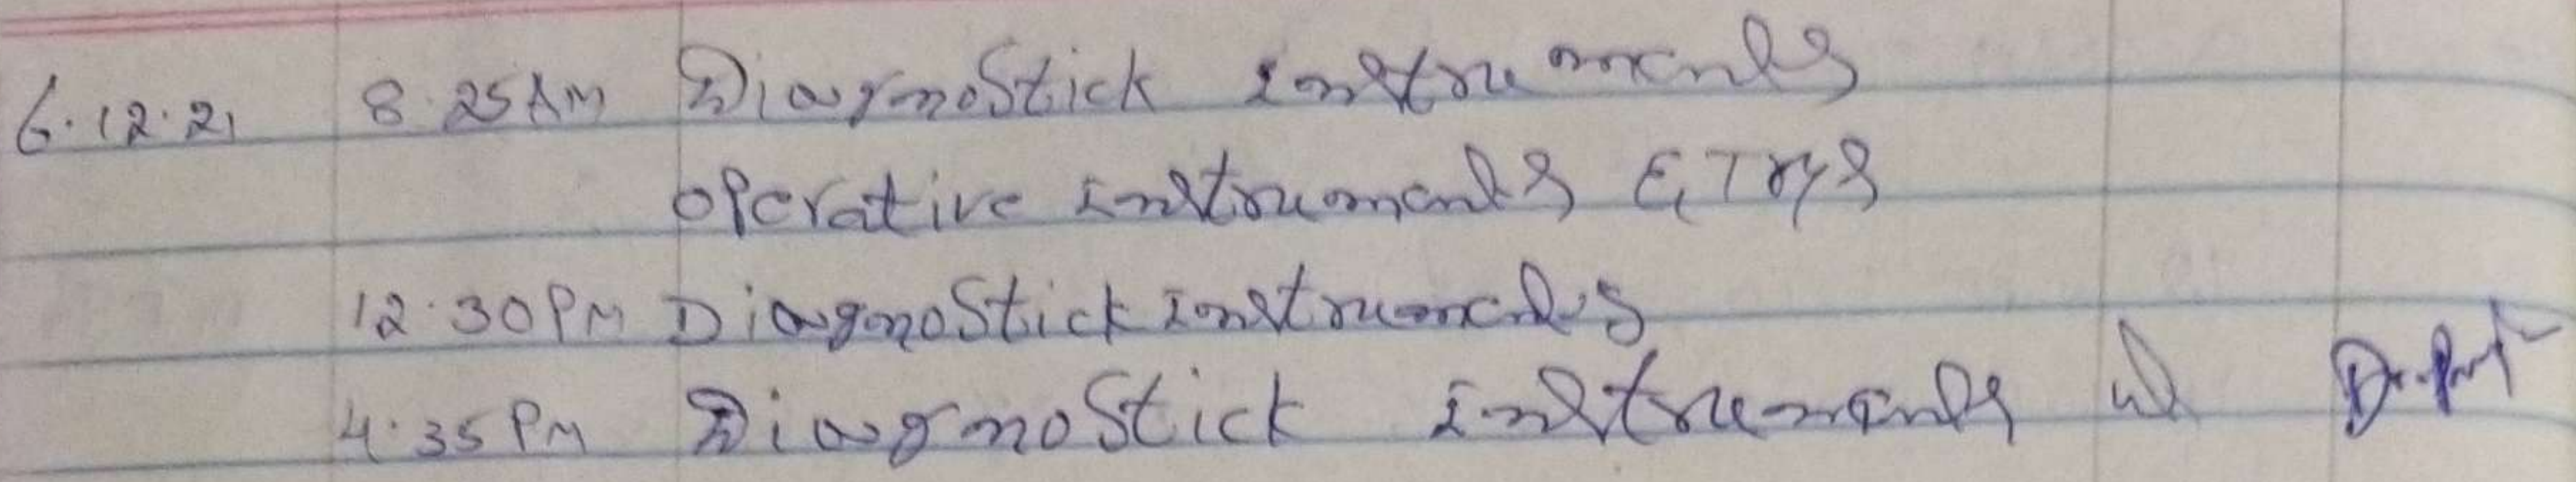 6.12.21 8.25AM Diagnostick instruments
operative instruments & Trys
12.30PM Diagnostick instruments
4.35PM Diagnostick instruments Dr.